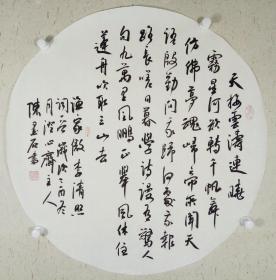 天接雲濤連曉
霧星河欲轉千帆舞
仿佛夢魂歸帝所聞天
語殷勤問我歸何處我報
路長嗟日暮學詩謾有驚人
句九萬里風鵬正舉風休住
蓬舟吹取三山去
漁家傲李清照
詞
月澄心齋主人
陳
書